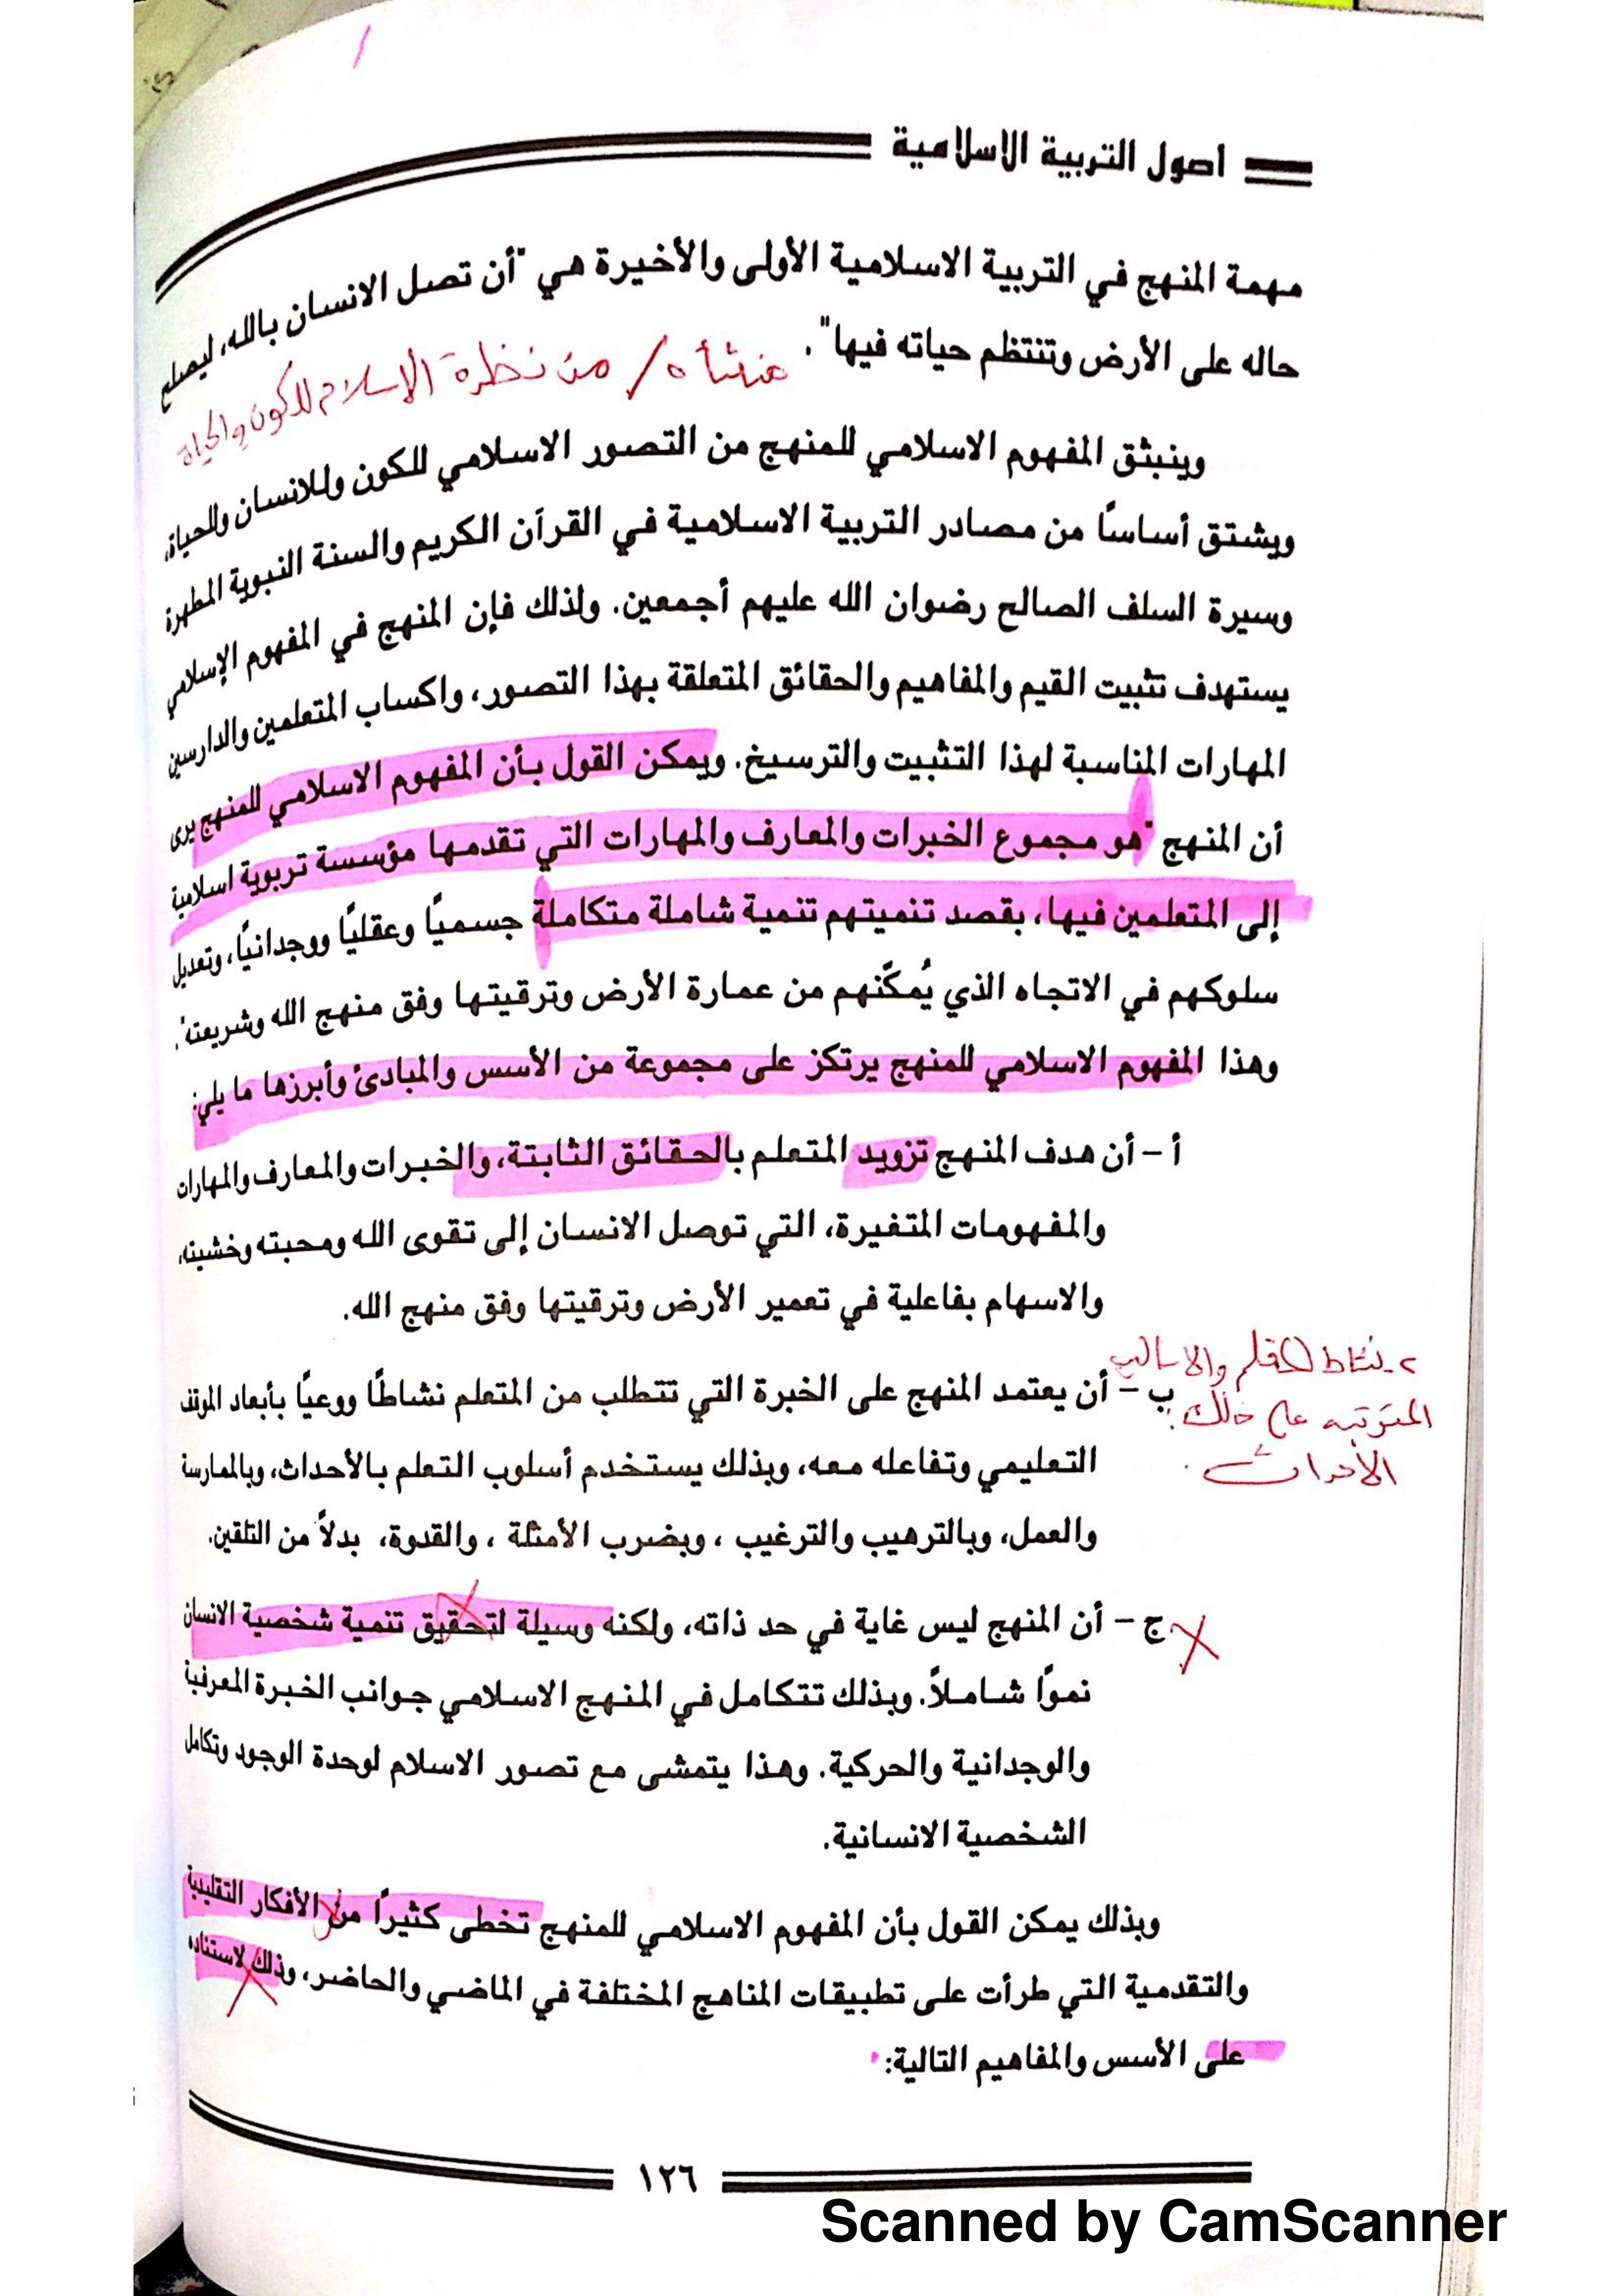 اصول التربية الاسلامية
مهمة المنهج في التربية الاسلامية الأولى والأخيرة هي "أن تصل الانسان بالله، ليصلح
حاله على الأرض وتنتظم حياته فيها".
منشأه / من نظرة الاسلام للكون والحياة
وينبثق المفهوم الاسلامي للمنهج من التصور الاسلامي للكون وللانسان وللحياة،
ويشتق أساسًا من مصادر التربية الاسلامية في القرآن الكريم والسنة النبوية المطهرة
وسيرة السلف الصالح رضوان الله عليهم أجمعين. ولذلك فإن المنهج في المفهوم الإسلامي
يستهدف تثبيت القيم والمفاهيم والحقائق المتعلقة بهذا التصور، واكساب المتعلمين والدارسين
المهارات المناسبة لهذا التثبيت والترسيخ. ويمكن القول بأن المفهوم الاسلامي للمنهج يرى
أن المنهج "هو مجموع الخبرات والمعارف والمهارات التي تقدمها مؤسسة تربوية اسلامية
إلى المتعلمين فيها، بقصد تنميتهم تنمية شاملة متكاملة جسميًا وعقليًا ووجدانيًا، وتعديل
سلوكهم في الاتجاه الذي يُمكّنهم من عمارة الأرض وترقيتها وفق منهج الله وشريعته".
وهذا المفهوم الاسلامي للمنهج يرتكز على مجموعة من الأسس والمبادئ وأبرزها ما يلي:
أ - أن هدف المنهج تزويد المتعلم بالحقائق الثابتة، والخبرات والمعارف والمهارات
والمفهومات المتغيرة، التي توصل الانسان إلى تقوى الله ومحبته وخشيته،
والاسهام بفاعلية في تعمير الأرض وترقيتها وفق منهج الله.
٢- نشاط والاساليب
المترتبه على ذلك:
الأحداث.
ب - أن يعتمد المنهج على الخبرة التي تتطلب من المتعلم نشاطًا ووعيًا بأبعاد الموقف
التعليمي وتفاعله معه، وبذلك يستخدم أسلوب التعلم بالأحداث، وبالممارسة
والعمل، وبالترهيب والترغيب ، وبضرب الأمثلة ، والقدوة، بدلاً من التلقين.
ج - أن المنهج ليس غاية في حد ذاته، ولكنه وسيلة لتحقيق تنمية شخصية الانسان
نموًا شاملاً. وبذلك تتكامل في المنهج الاسلامي جوانب الخبرة المعرفية
والوجدانية والحركية. وهذا يتمشى مع تصور الاسلام لوحدة الوجود وتكامل
الشخصية الانسانية.
وبذلك يمكن القول بأن المفهوم الاسلامي للمنهج تخطى كثيرًا من الأفكار التقليدية
والتقدمية التي طرأت على تطبيقات المناهج المختلفة في الماضي والحاضر، وذلك لاستناده
على الأسس والمفاهيم التالية:
١٢٦
Scanned by CamScanner